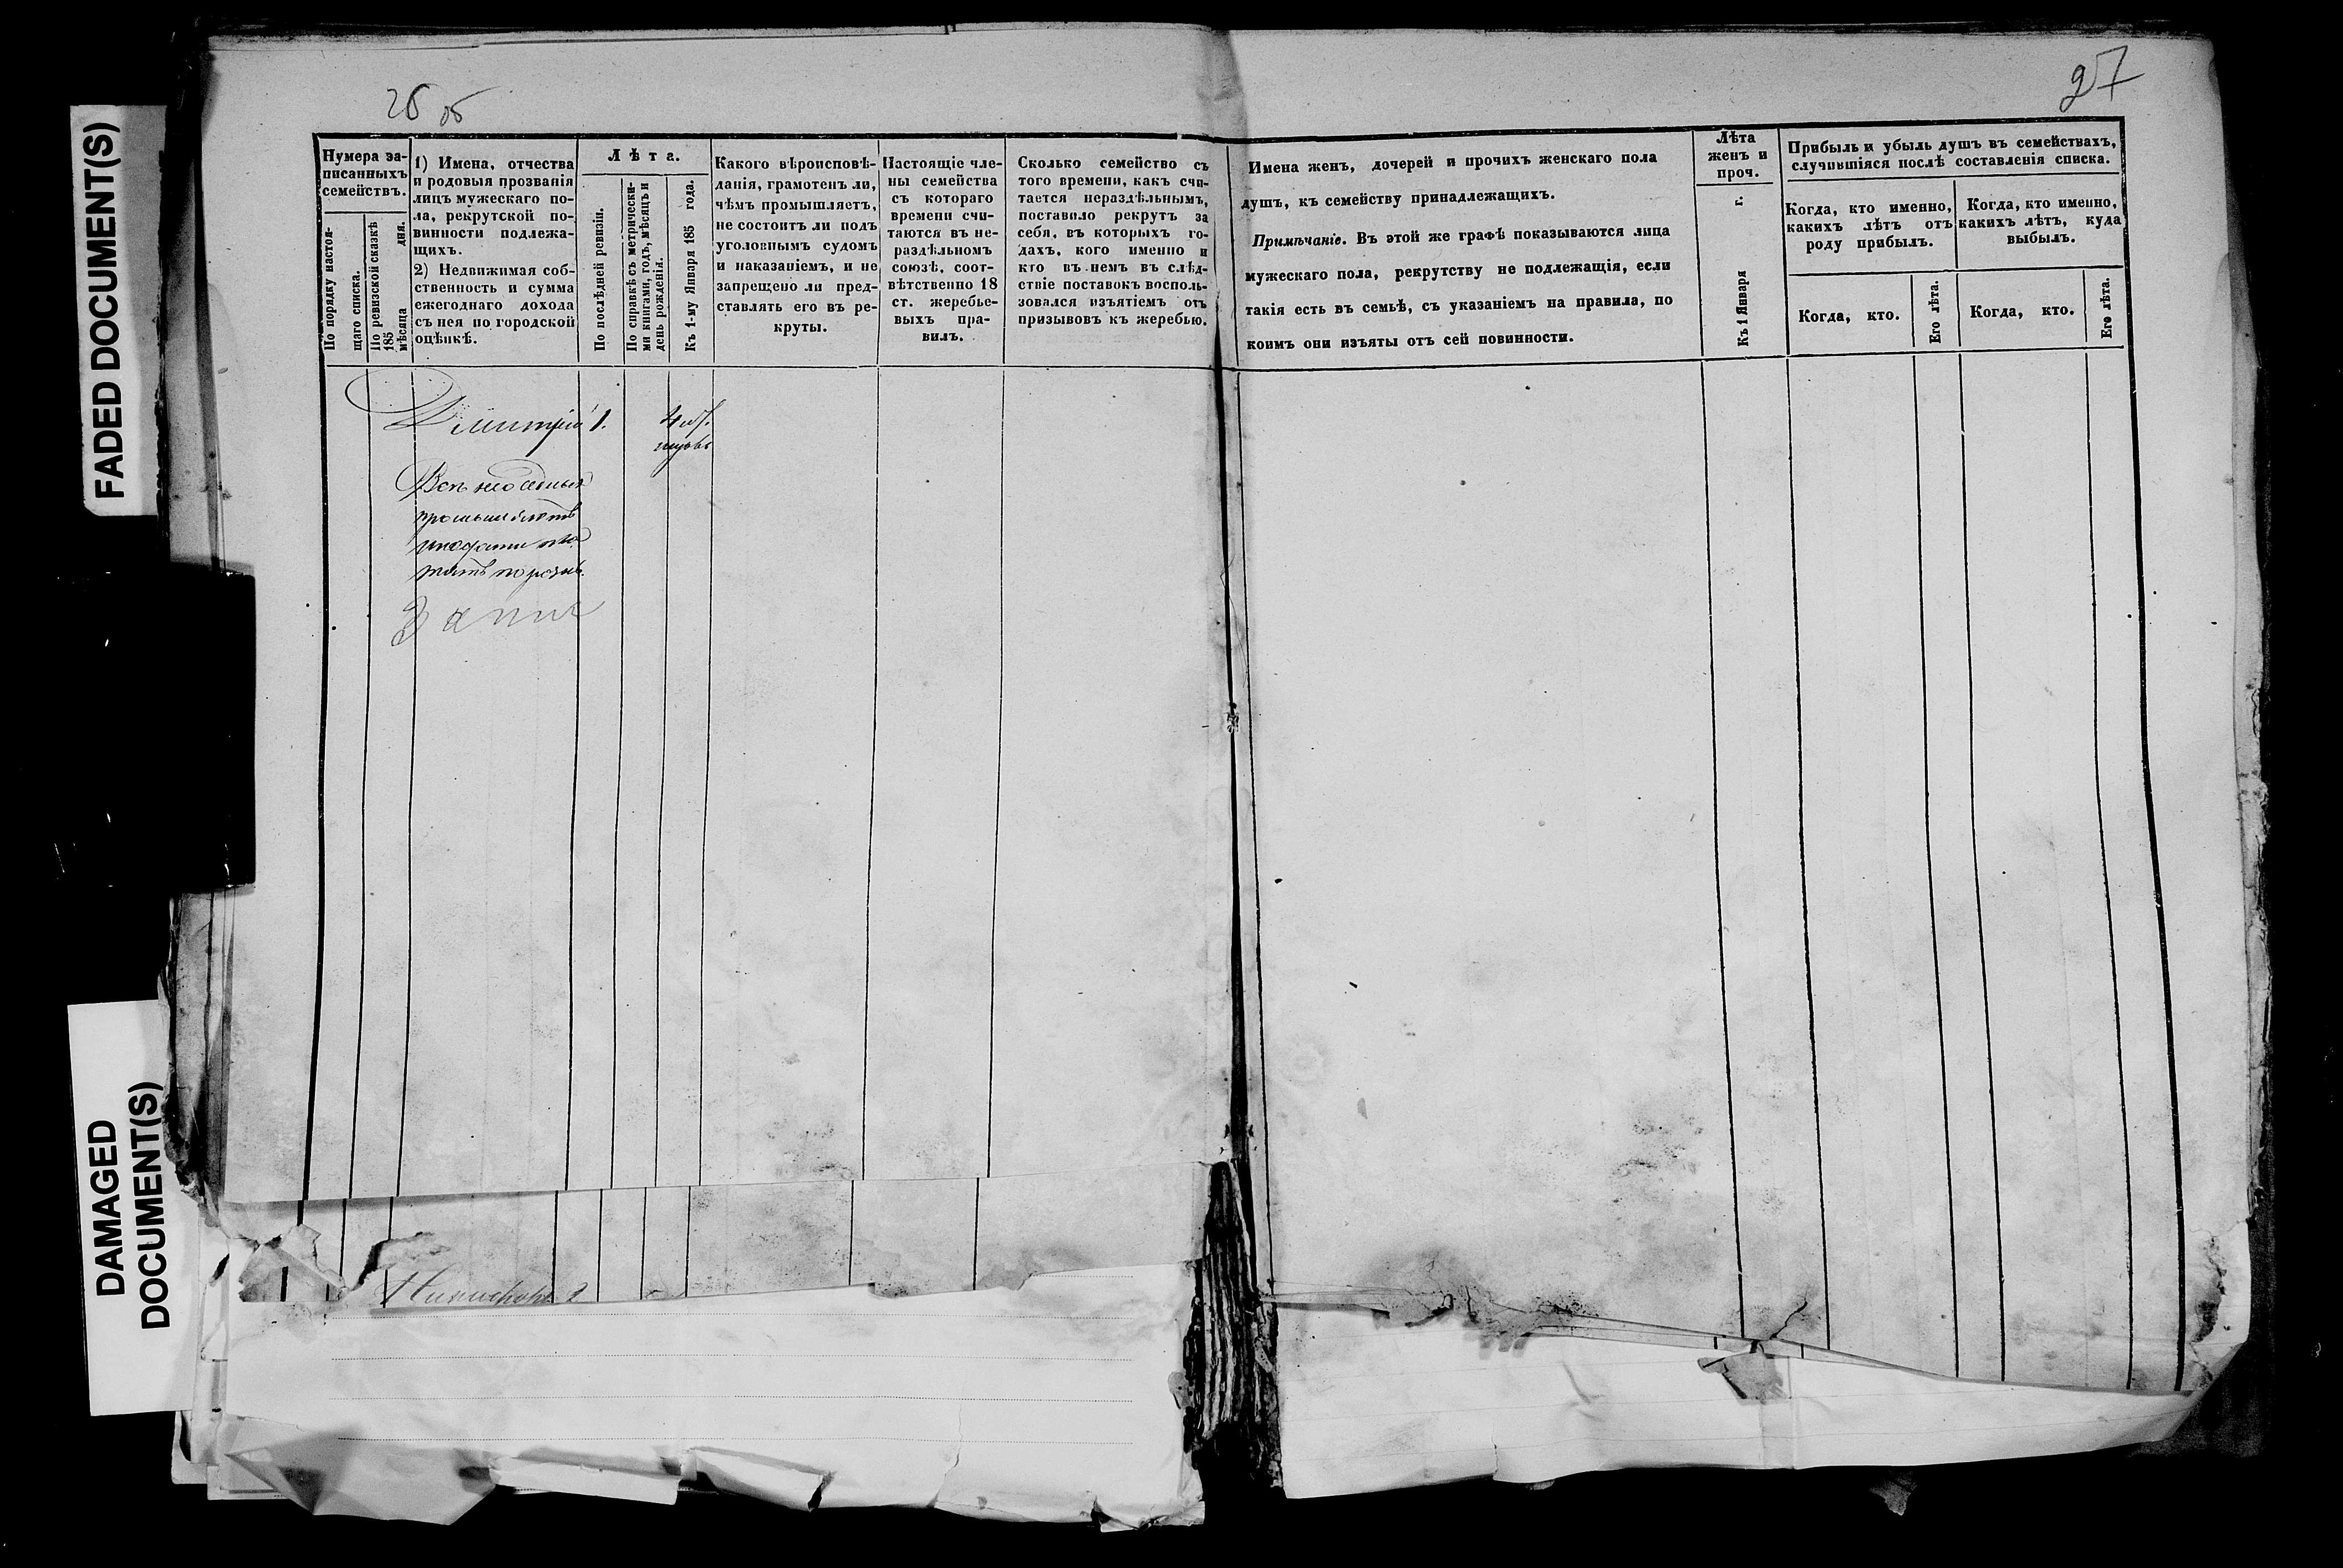 FADED DOCUMENT(S)
DAMAGED
DOCUMENT(S)
26 об
27
Нумера за-
писанныхъ
семействъ.
По порядку настоя-
щаго списка.
По ревизской сказкѣ
185 дня.
мѣсяца
1) Имена, отчества
и родовыя прозванія
лицъ мужескаго по-
ла, рекрутской по-
винности подлежа-
щихъ.
2) Недвижимая соб-
ственность и сумма
ежегоднаго дохода
съ нея по городской
оцѣнкѣ.
Лѣта.
По послѣдней ревизіи.
По справкѣ съ метрически-
ми книгами, годъ, мѣсяцъ и
день рожденія.
Къ 1-му Января 185 года.
Какого вѣроисповѣ-
данія, грамотенъ ли,
чѣмъ промышляетъ,
не состоитъ ли подъ
уголовнымъ судомъ
и наказаніемъ, и не
запрещено ли пред-
ставлять его въ ре-
круты.
Настоящіе чле-
ны семейства
съ котораго
времени счи-
таются въ не-
раздѣльномъ
союзѣ, соот-
вѣтственно 18
ст. жеребье-
выхъ пра-
вилъ.
Сколько семейство съ
того времени, какъ счи-
тается нераздѣльнымъ,
поставило рекрутъ за
себя, въ которыхъ го-
дахъ, кого именно и
кто въ немъ въ слѣд-
ствіе поставокъ восполь-
зовался изъятіемъ отъ
призывовъ къ жеребью.
Имена женъ, дочерей и прочихъ женскаго пола
душъ, къ семейству принадлежащихъ.
Примѣчаніе. Въ этой же графѣ показываются лица
мужескаго пола, рекрутству не подлежащія, если
такія есть въ семьѣ, съ указаніемъ на правила, по
коимъ они изъяты отъ сей повинности.
Лѣта
женъ и
проч.
Къ 1 Января г.
Прибыль и убыль душъ въ семействахъ,
случившіяся послѣ составленія списка.
Когда, кто именно,
какихъ лѣтъ отъ
роду прибылъ.
Когда, кто.
Его лѣта.
Когда, кто именно,
какихъ лѣтъ, куда
выбылъ.
Когда, кто.
Его лѣта.
Дмитрій 1.
Всѣ
порознь.
Никифоръ 2